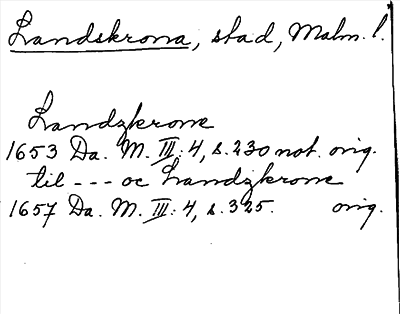 Landskrona, stad, Malm. l.
Landzkrone
1653 Da. M. III: 4, s. 230 not. orig.
til --- oc Landzkrone
1657 Da. M. III: 4, s. 325. orig.